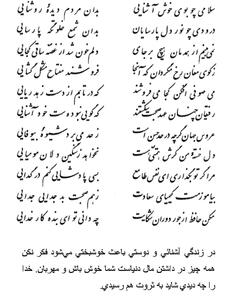 سلامی چو بوی خوش آشنایی بدان مردم دیده روشنایی
درودی چو نور دل پارسایان بدان شمع خلوتگه پارسایی
نمی‌بینم از همدمان هیچ بر جای دلم خون شد از غصه ساقی کجایی
ز کوی مغان رخ مگردان که آنجا فروشند مفتاح مشکل گشایی
می صوفی افکن کجا می‌فروشند که در تابم از دست زهد ریایی
رفیقان چنان عهد صحبت شکستند که گویی نبوده‌ست خود آشنایی
عروس جهان گرچه در حد حسن است ز حد می‌برد شیوه بیوفایی
دل خسته من گرش همتی هست نخواهد ز سنگین دلان مومیایی
مرا گر تو بگذاری ای نفس طامع بسی پادشایی کنم در گدایی
بیاموزمت کیمیای سعادت ز هم صحبت بد جدایی جدایی
مکن حافظ از جور دوران شکایت چه دانی تو ای بنده کار خدایی
در زندگي آشنائي و دوستي باعث خوشبختي مي‌شود فکر نکن
همه چيز در داشتن مال دنياست شما خوش باش و مهربان. خدا
را چه ديدي شايد به ثروت هم رسيدي.